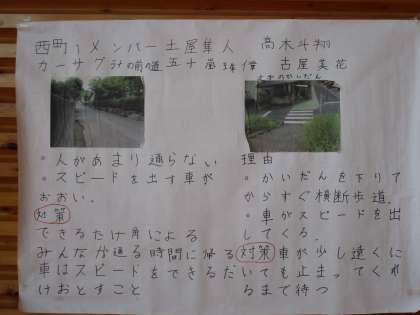 西町1メンバー土屋隼人 高木斗翔
カーサグランの前の道五十嵐 古屋美花
かいだん
・人があまり通らない
・スピードを出す車が
おおい。
対策
できるだけ角による
みんなが通る時間に帰る
車はスピードをできるだ
けおとすこと
理由
・かいだんを下りて
からすぐ横断歩道。
・車がスピードを出
してくる。
対策 車が少し遠くに
いても止まってくれ
るまで待つ